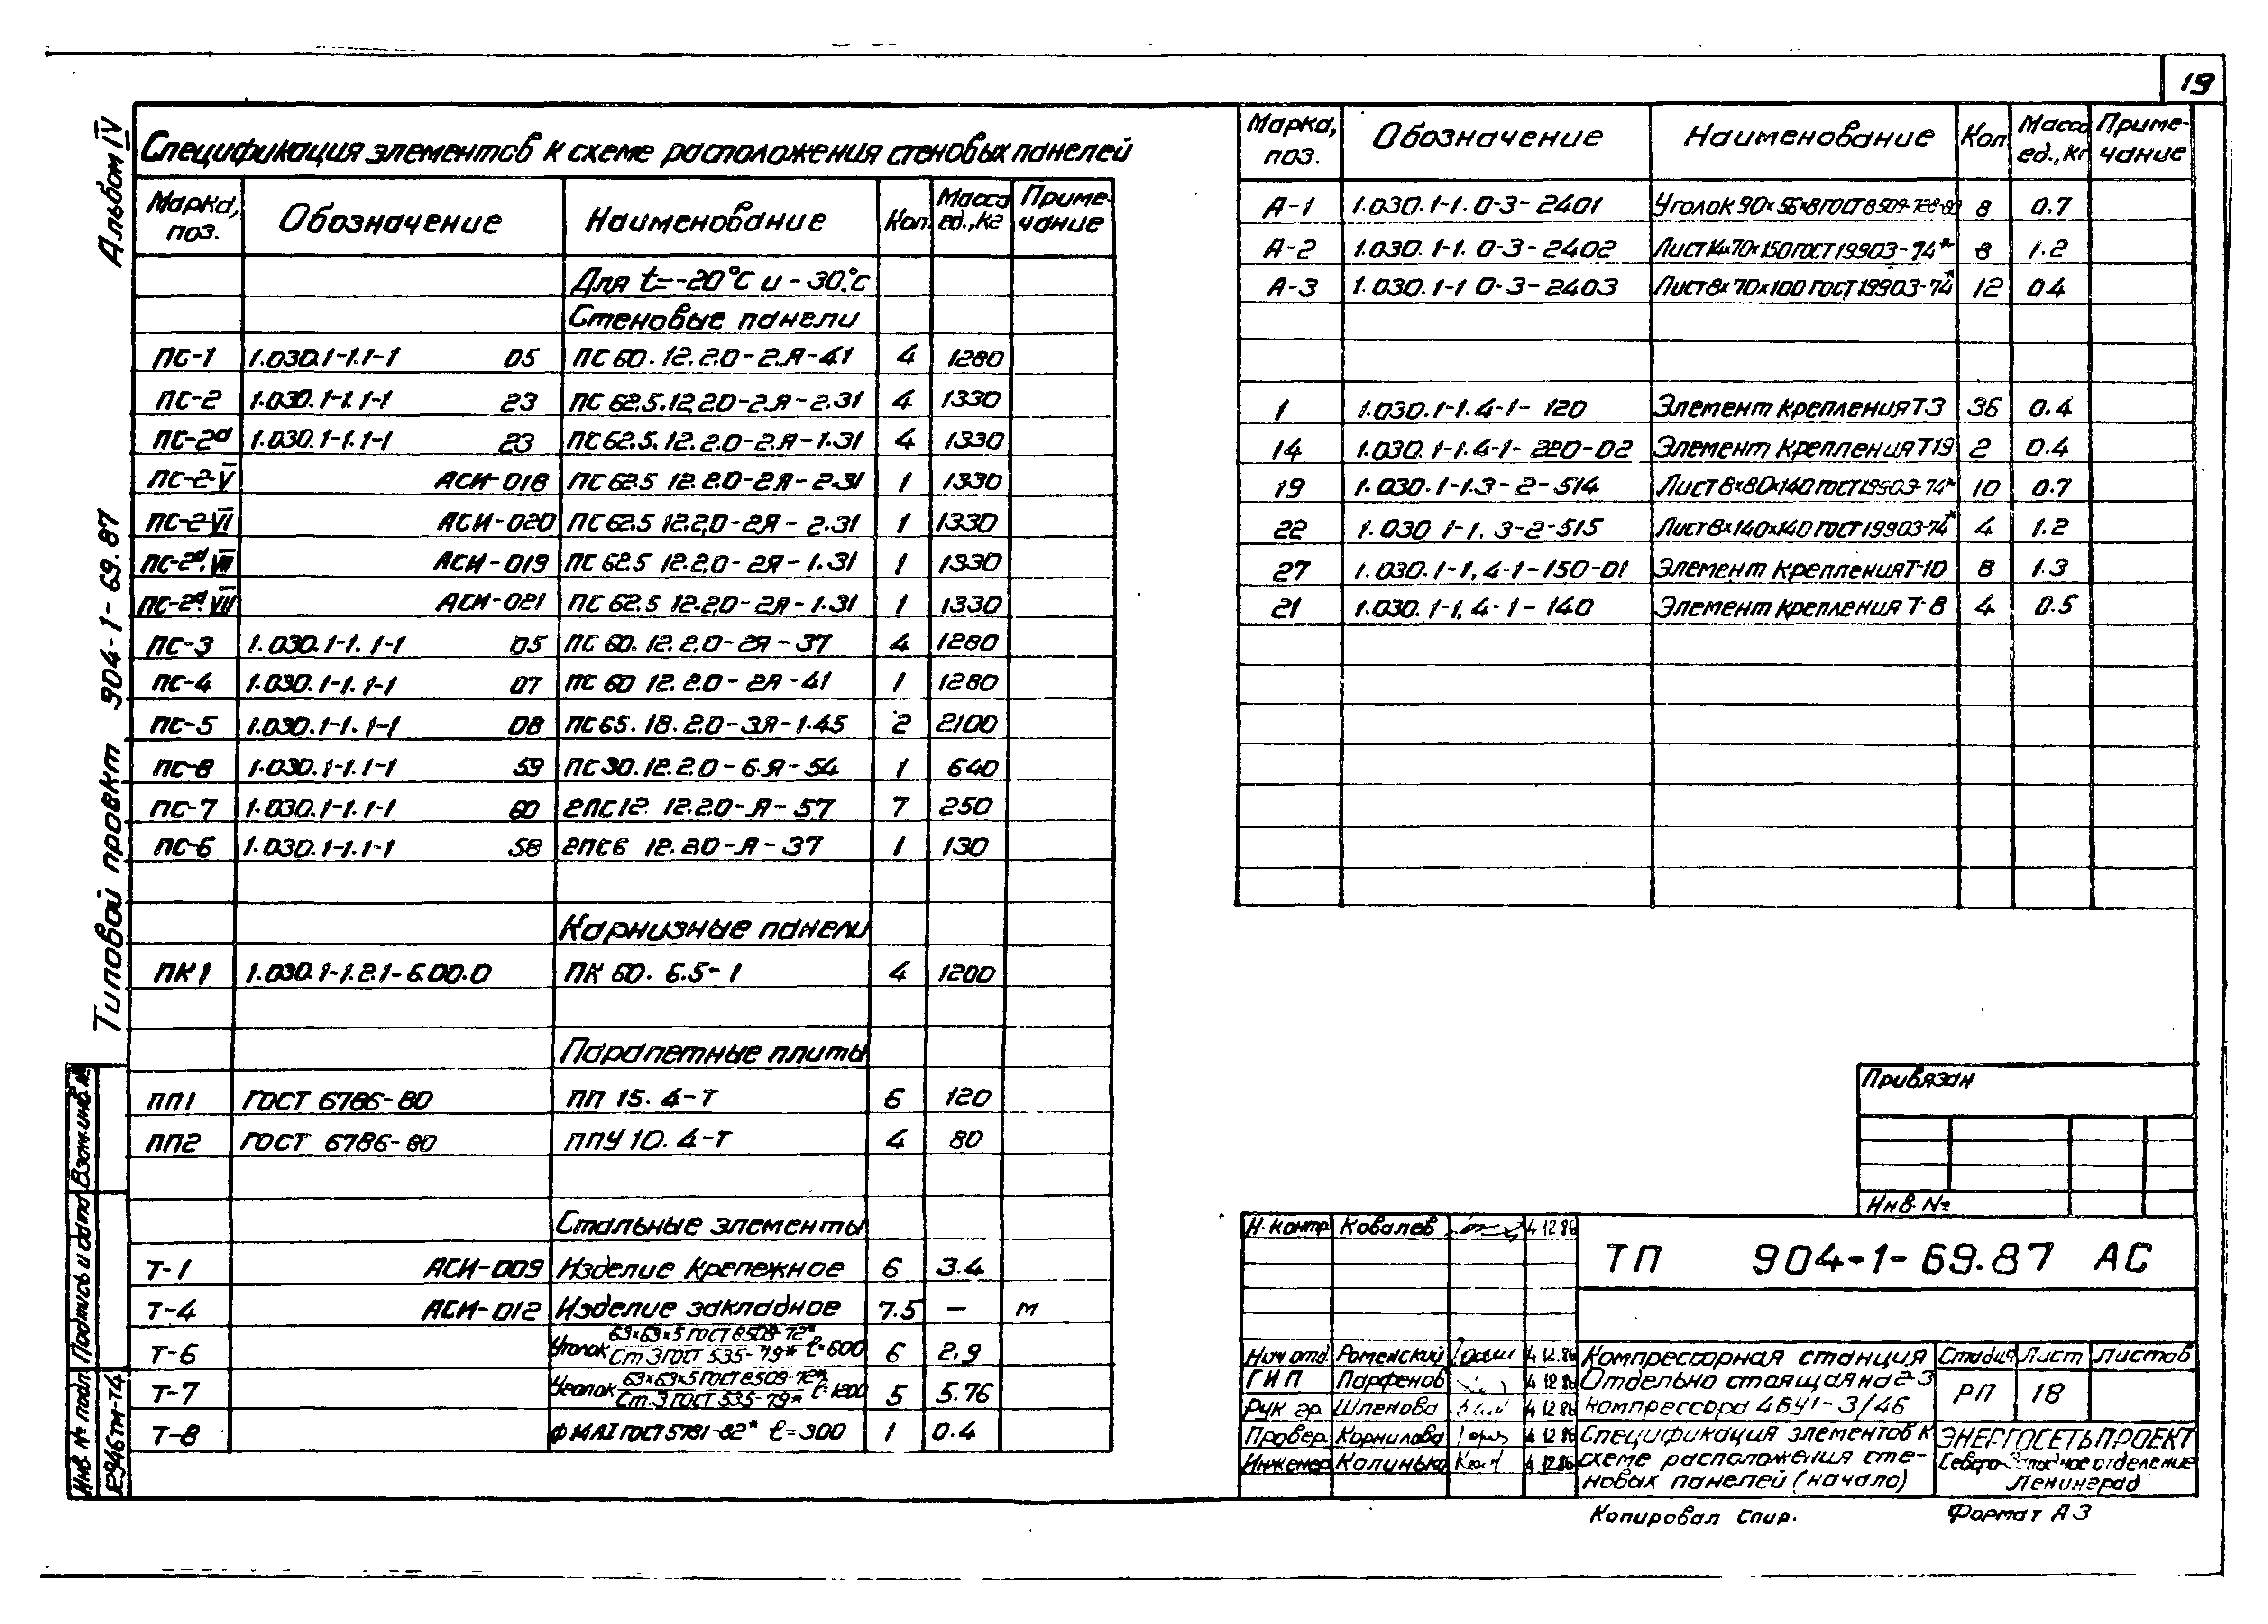 19
Альбом IV
Типовой проект 904-1-69.87
Взам. инв. №
Подпись и дата
Инв. № подл.
12946тм-т4
Спецификация элементов к схеме расположения стеновых панелей
Марка, поз. Обозначение Наименование Кол. Масса ед., кг Примечание
Для t=-20°C и -30°C
Стеновые панели
ПС-1 1.030.1-1.1-1 05 ПС 60.12.2.0-2.Я-41 4 1280
ПС-2 1.030.1-1.1-1 23 ПС 62.5.12.2.0-2.Я-2.31 4 1330
ПС-2а 1.030.1-1.1-1 23 ПС 62.5.12.2.0-2.Я-1.31 4 1330
ПС-2-V АСИ-018 ПС 62.5 12.2.0-2Я-2.31 1 1330
ПС-2-VI АСИ-020 ПС 62.5 12.2.0-2Я-2.31 1 1330
ПС-2а. АСИ-019 ПС 62.5 12.2.0-2Я-1.31 1 1330
ПС-2а. VII АСИ-021 ПС 62.5 12.2.0-2Я-1.31 1 1330
ПС-3 1.030.1-1.1-1 05 ПС 60.12.2.0-2Я-37 4 1280
ПС-4 1.030.1-1.1-1 07 ПС 60 12.2.0-2Я-41 1 1280
ПС-5 1.030.1-1.1-1 08 ПС 65.18.2.0-3Я-1.45 2 2100
ПС-8 1.030.1-1.1-1 59 ПС 30.12.2.0-6.Я-54 1 640
ПС-7 1.030.1-1.1-1 60 2ПС12. 12.2.0-Я-57 7 250
ПС-6 1.030.1-1.1-1 58 2ПС6 12.2.0-Я-37 1 130
Карнизные панели
ПК1 1.030.1-1.2.1-6.00.0 ПК 60. 6.5-1 4 1200
Парапетные плиты
ПП1 ГОСТ 6786-80 ПП 15. 4-Т 6 120
ПП2 ГОСТ 6786-80 ППУ 10. 4-Т 4 80
Стальные элементы
Т-1 АСИ-009 Изделие крепежное 6 3.4
Т-4 АСИ-012 Изделие закладное 7.5 — м
Т-6 Уголок 63×63×5 ГОСТ 8509-72* / Ст 3 ГОСТ 535-79* ℓ=600 6 2.9
Т-7 Уголок 63×63×5 ГОСТ 8509-72* / Ст.3 ГОСТ 535-79* ℓ=1200 5 5.76
Т-8 ф14АI ГОСТ 5781-82* ℓ=300 1 0.4
Марка, поз. Обозначение Наименование Кол Масса ед., кг Примечание
А-1 1.030.1-1.0-3-2401 Уголок 90×56×8 ГОСТ 8509- 8 0.7
А-2 1.030.1-1.0-3-2402 Лист 14×70×150 ГОСТ 19903-74* 8 1.2
А-3 1.030.1-1 0-3-2403 Лист 8×70×100 ГОСТ 19903-74* 12 0.4
1 1.030.1-1.4-1-120 Элемент крепления Т3 36 0.4
14 1.030.1-1.4-1-220-02 Элемент крепления Т19 2 0.4
19 1.030.1-1.3-2-514 Лист 8×80×140 ГОСТ 19903-74* 10 0.7
22 1.030 1-1.3-2-515 Лист 8×140×140 ГОСТ 19903-74* 4 1.2
27 1.030.1-1.4-1-150-01 Элемент крепления Т-10 8 1.3
21 1.030.1-1.4-1-140 Элемент крепления Т-8 4 0.5
Привязан
Инв. №
Н. контр Ковалев 4 12.86
ТП 904-1-69.87 АС
Нач отд Роменский 4 12.86
ГИП Парфенов 4 12.86
Рук гр Шленова 4 12.86
Провер. Корнилова 4 12.86
Инженер Калинько 4 12.86
Компрессорная станция
Отдельно стоящая на 2-3
компрессора 4ВУ1-3/46
Стадия Лист Листов
РП 18
Спецификация элементов к
схеме расположения сте-
новых панелей (начало)
ЭНЕРГОСЕТЬПРОЕКТ
Северо-Западное отделение
Ленинград
Копировал Спир.
Формат А3